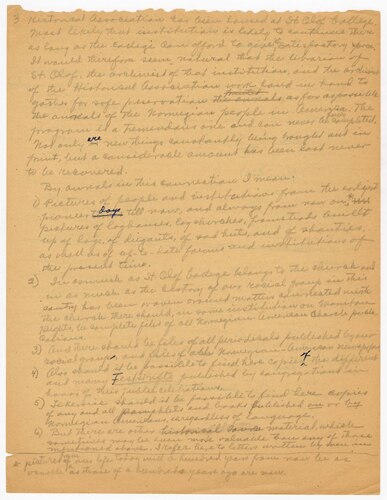 3 Historical Association has been housed at St. Olof College.
Most likely that institution is likely to continue there as
long as the College can afford to give the depository space.
It would therefore seem natural that the librarian of
St. Olof, the archivist of that institution, and the archivist
of the Historical Association work hand in hand to
gather for safe preservation as far as possible
the annals of the Norwegian people in America. The
program is a tremendous one and can never be completed.
Not only are new things constantly being bought and in
print, but a considerable amount has been lost never
to be recovered.
By annals in this connection I mean:
1) Pictures of people and institutions from the earliest
pioneer days till now, and always from now on,
pictures of loghouses, log churches, homesteads built
up of logs, of dugouts, of sod huts, and of shanties,
as well as of up-to-date farms and institutions of
the present time.
2) In as much as St. Olof College belongs to the church and
in as much as the history of our racial group in this
country has been woven around matters connected with
the church there should, in some institution on Manitou
Heights, be complete files of all Norwegian American Church publi-
cations.
3) And there should be files of all periodicals published by our
racial group, and files of all Norwegian American newspapers
4) Also should it be possible to find here copies of the different
and many Festskrifts published by congregations in
honor of their celebrations.
5) Likewise should it be possible to find here copies
of any and all pamphlets and books published on or by
Norwegian Americans, regardless of language.
6) But there are other historical source material, which
sometimes may be even more valuable than any of those
mentioned above. I refer here to letters written by men in
pictures of today will a hundred years from now be as
valuable as those of a hundred years ago are now.